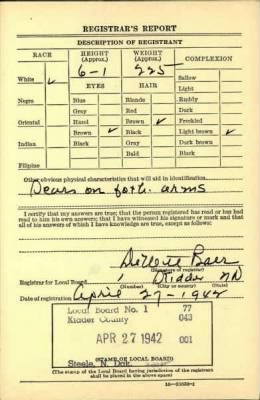 REGISTRAR'S REPORT
DESCRIPTION OF REGISTRANT
RACE HEIGHT (Approx.) WEIGHT (Approx.) COMPLEXION
6-1 225
White ✓ Sallow
EYES HAIR Light
Negro Blue Blonde Ruddy
Gray Red Dark
Oriental Hazel Brown ✓ Freckled
Brown ✓ Black Light brown ✓
Indian Black Gray Dark brown
Bald Black
Filipino
Other obvious physical characteristics that will aid in identification
on arms
I certify that my answers are true; that the person registered has read or has had
read to him his own answers; that I have witnessed his signature or mark and that
all of his answers of which I have knowledge are true, except as follows:
(Signature of registrar)
Registrar for Local Board 1 Kidder ND
(Number) (City or county) (State)
Date of registration April 27-1942
Local Board No. 1 77
Kidder County 043
APR 27 1942 001
(STAMP OF LOCAL BOARD)
Steele, N. Dak.
(The stamp of the Local Board having jurisdiction of the registrant
shall be placed in the above space)